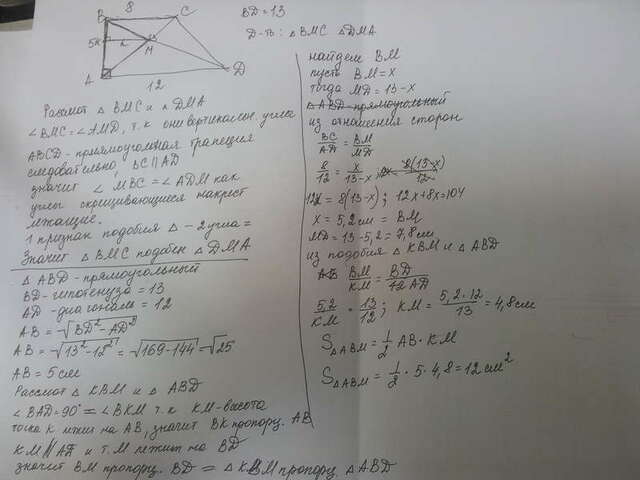 8
B C
BD=13
5x x M
A D
12
Д-ть: △BMC △DMA
Рассмот △ BMC и △ DMA
∠BMC=∠AMD, т.к они вертикальн. углы
ABCD - прямоугольная трапеция
следовательно, BC||AD
значит ∠ MBC = ∠ADM как
углы скрещивающиеся накрест
лежащие.
1 признак подобия △ - 2 угла =
Значит △ BMC подобен △ DMA
△ ABD - прямоугольный
BD - гипотенуза = 13
AD - диагональ = 12
AB = √BD² - AD²
AB = √13² - 12² = √169-144 = √25
AB = 5 см
Рассмот △ KBM и △ ABD
∠BAD = 90° = ∠BKM т.к KM - высота
точка K лежит на AB, значит BK пропорц. AB
KM || AD и т. M лежит на BD
значит BM пропорц. BD = △ KBM пропорц. △ABD
найдем BM
пусть BM = x
тогда MD = 13-x
△ ABD - прямоугольный
из отношения сторон
BC/AD = BM/MD
8/12 = x/13-x 8(13-x)/12
12x = 8(13-x); 12x+8x=104
x = 5,2 см = BM
MD = 13-5,2 = 7,8 см
из подобия △ KBM и △ ABD
BM/KM = BD/AD
5,2/KM = 13/12; KM = 5,2·12/13 = 4,8 см
S△ABM = 1/2 AB · KM
S△ABM = 1/2 · 5 · 4,8 = 12 см²